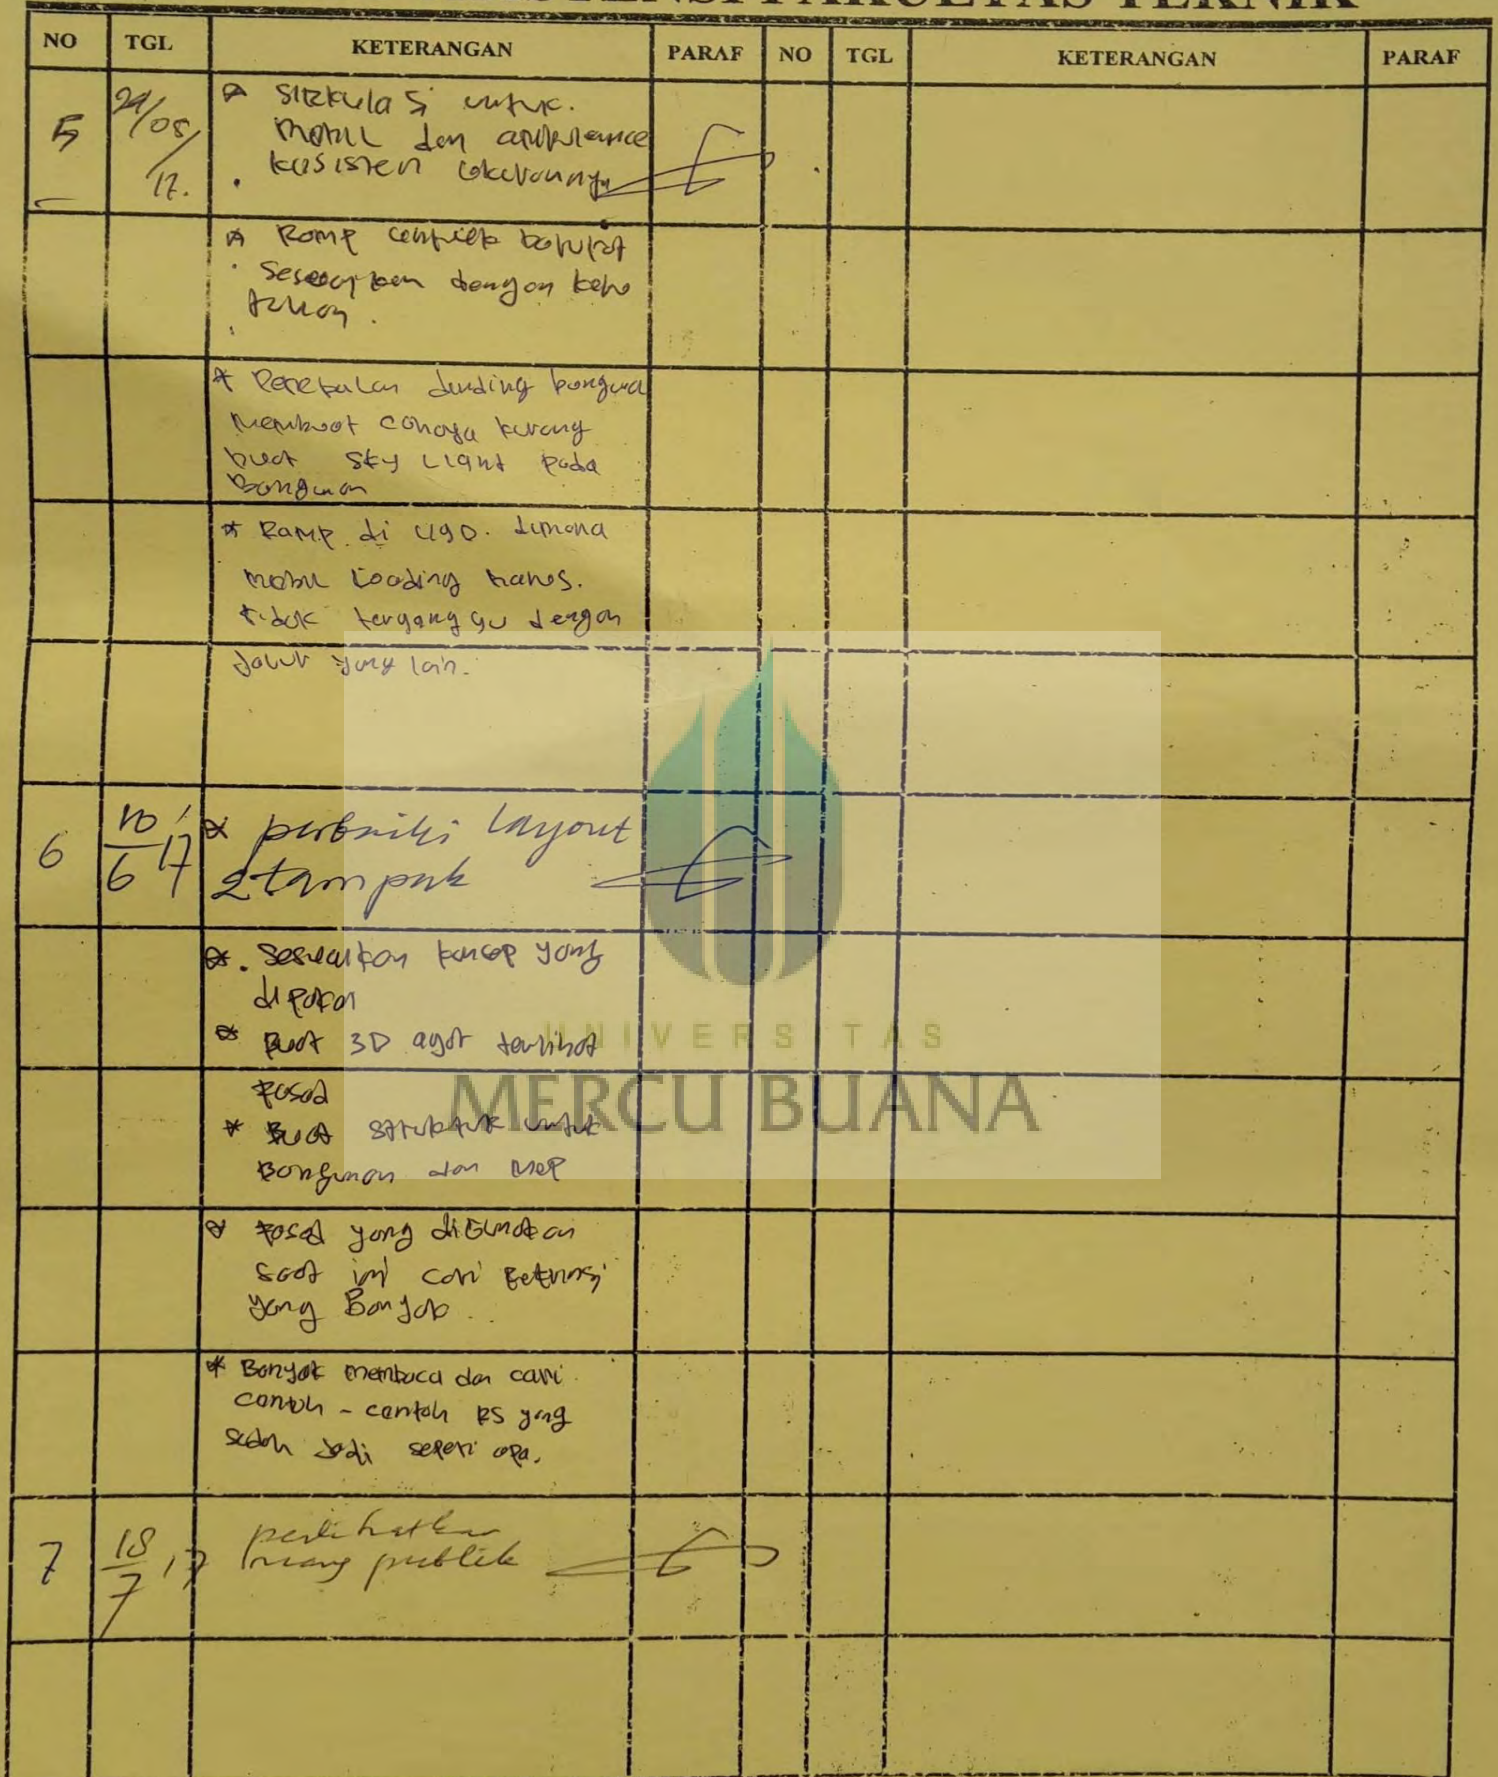 FAKULTAS TEKNIK
NO TGL KETERANGAN PARAF NO TGL KETERANGAN PARAF
5
/05/
17.
* Sirkulasi untuk.
Mobil dan ambulance
kosisten
* Ramp
dengan kebu
tuhan.
* Penebalan dinding bangunan
membuat cahaya kurang
buat sky Light pada
Bangunan
* Ramp di UGD. dimana
mobil Loading harus.
tidak terganggu dengan
Jalur yang lain.
6
10/6 17
* perbaiki layout
& tampak
* . Sesuaikan konsep yang
di pakai
* Buat 3D agar terlihat
Fasad
* Buat struktur untuk
Bangunan dan MEP
* Fasad yang digunakan
saat ini cari
yang Banyak.
* Banyak membaca dan cari.
contoh - contoh RS yang
sudah jadi seperti apa.
7
18/7 17
perlihatkan
ruang publik
UNIVERSITAS
MERCU BUANA